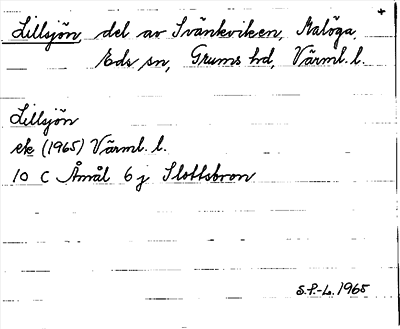 +
Lillsjön, del av Svänkviken, Malöga,
Eds sn, Grums hd, Värml. l.
Lillsjön
ek (1965) Värml. l.
10 C Åmål 6 j Slottsbron
S.P.-L. 1965